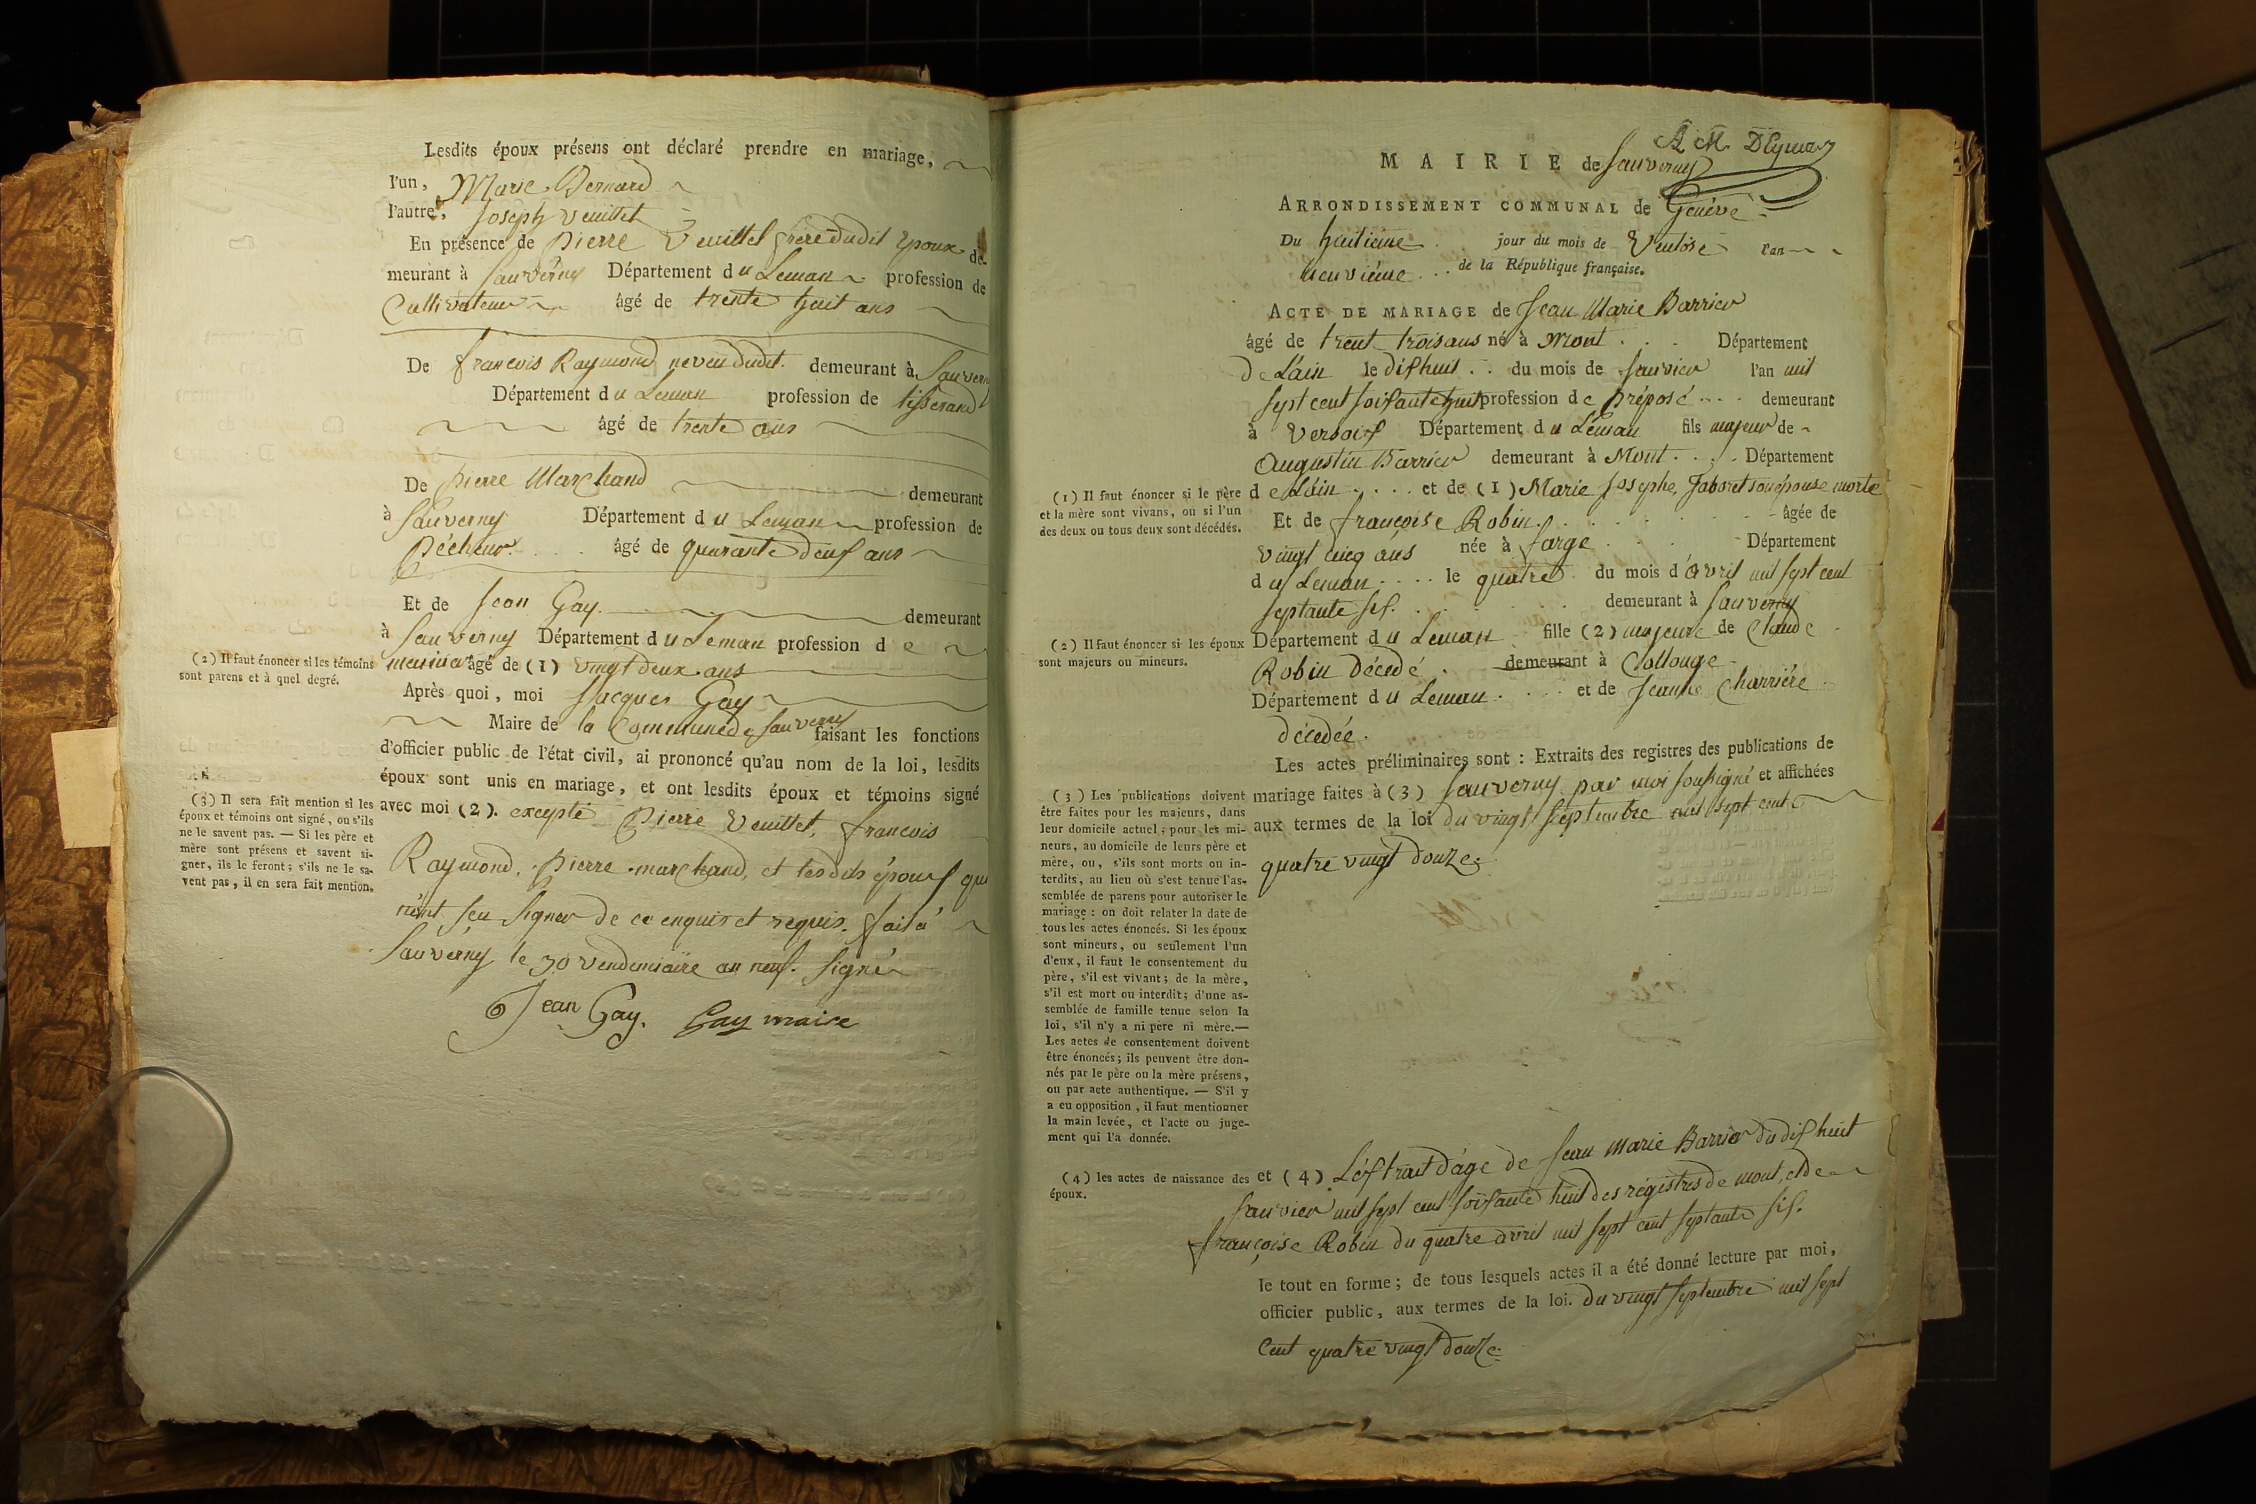 Lesdits époux présens ont déclaré prendre en mariage,
l'un, Marie Bernard
l'autre, Joseph Veuillet
En présence de Pierre Veuillet frère dudit Epoux de-
meurant à Sauverny Département du Leman profession de
Cultivateur âgé de trente huit ans
De francois Raymond neveu dudit demeurant à Sauverny
Département du Leman profession de tisserand
âgé de trente ans
De Pierre Marchand demeurant
à Sauverny Département du Leman profession de
Pécheur âgé de quarante deux ans
Et de Jean Gay demeurant
à Sauverny Département du Leman profession de
(2) Il faut énoncer si les témoins
sont parens et à quel degré.
meunier âgé de (1) vingt deux ans
Après quoi, moi Jacques Gay
Maire de la Commune de Sauverny faisant les fonctions
d'officier public de l'état civil, ai prononcé qu'au nom de la loi, lesdits
époux sont unis en mariage, et ont lesdits époux et témoins signé
(3) Il sera fait mention si les
époux et témoins ont signé, ou s'ils
ne le savent pas. — Si les père et
mère sont présens et savent si-
gner, ils le feront; s'ils ne le sa-
vent pas, il en sera fait mention.
avec moi (2). excepté Pierre Veuillet, francois
Raymond, Pierre marchand, et lesdits époux qui
n'ont seu signer de ce enquis et requis. fait à
Sauverny le 30 vendemiaire an neuf. signé
Jean Gay. Gay maire
MAIRIE de Sauverny
ARRONDISSEMENT COMMUNAL de Genève
Du huitieme jour du mois de Ventôse l'an
neuvième de la République française.
ACTE DE MARIAGE de Jean Marie Barrier
âgé de trent trois ans né à Mont Département
de L'ain le dixhuit du mois de Janvier l'an mil
sept cent soixante huit profession de Préposé demeurant
à Versoix Département du Léman fils majeur de
Augustin Barrier demeurant à Mont Département
(1) Il faut énoncer si le père
et la mère sont vivans, ou si l'un
des deux ou tous deux sont décédés.
de L'ain et de (1) Marie Josephe, Jaboret son épouse morte
Et de françoise Robin âgée de
vingt cinq ans née à farge Département
du Leman le quatre du mois d'avril mil sept cent
septante six. demeurant à Sauverny
(2) Il faut énoncer si les époux
sont majeurs ou mineurs.
Département du Leman fille (2) majeure de Claude
Robin Décedé demeurant à Collonge
Département du Leman et de Jeanne Charrière
décedée.
Les actes préliminaires sont : Extraits des registres des publications de
mariage faites à (3) Sauverny par moi soussigné et affichées
aux termes de la loi du vingt septembre mil sept cent
quatre vingt douze.
(3) Les publications doivent
être faites pour les majeurs, dans
leur domicile actuel; pour les mi-
neurs, au domicile de leurs père et
mère, ou, s'ils sont morts ou in-
terdits, au lieu où s'est tenue l'as-
semblée de parens pour autoriser le
mariage : on doit relater la date de
tous les actes énoncés. Si les époux
sont mineurs, ou seulement l'un
d'eux, il faut le consentement du
père, s'il est vivant; de la mère,
s'il est mort ou interdit; d'une as-
semblée de famille tenue selon la
loi, s'il n'y a ni père ni mère.—
Les actes de consentement doivent
être énoncés; ils peuvent être don-
nés par le père ou la mère présens,
ou par acte authentique. — S'il y
a eu opposition, il faut mentionner
la main levée, et l'acte ou juge-
ment qui l'a donnée.
(4) les actes de naissance des
époux.
et (4) L'extrait d'age de Jean Marie Barrier du dixhuit
Janvier mil sept cent soixante huit des régistres de mont, et de
françoise Robin du quatre avril mil sept cent septante six.
le tout en forme; de tous lesquels actes il a été donné lecture par moi,
officier public, aux termes de la loi. du vingt septembre mil sept
cent quatre vingt douze.